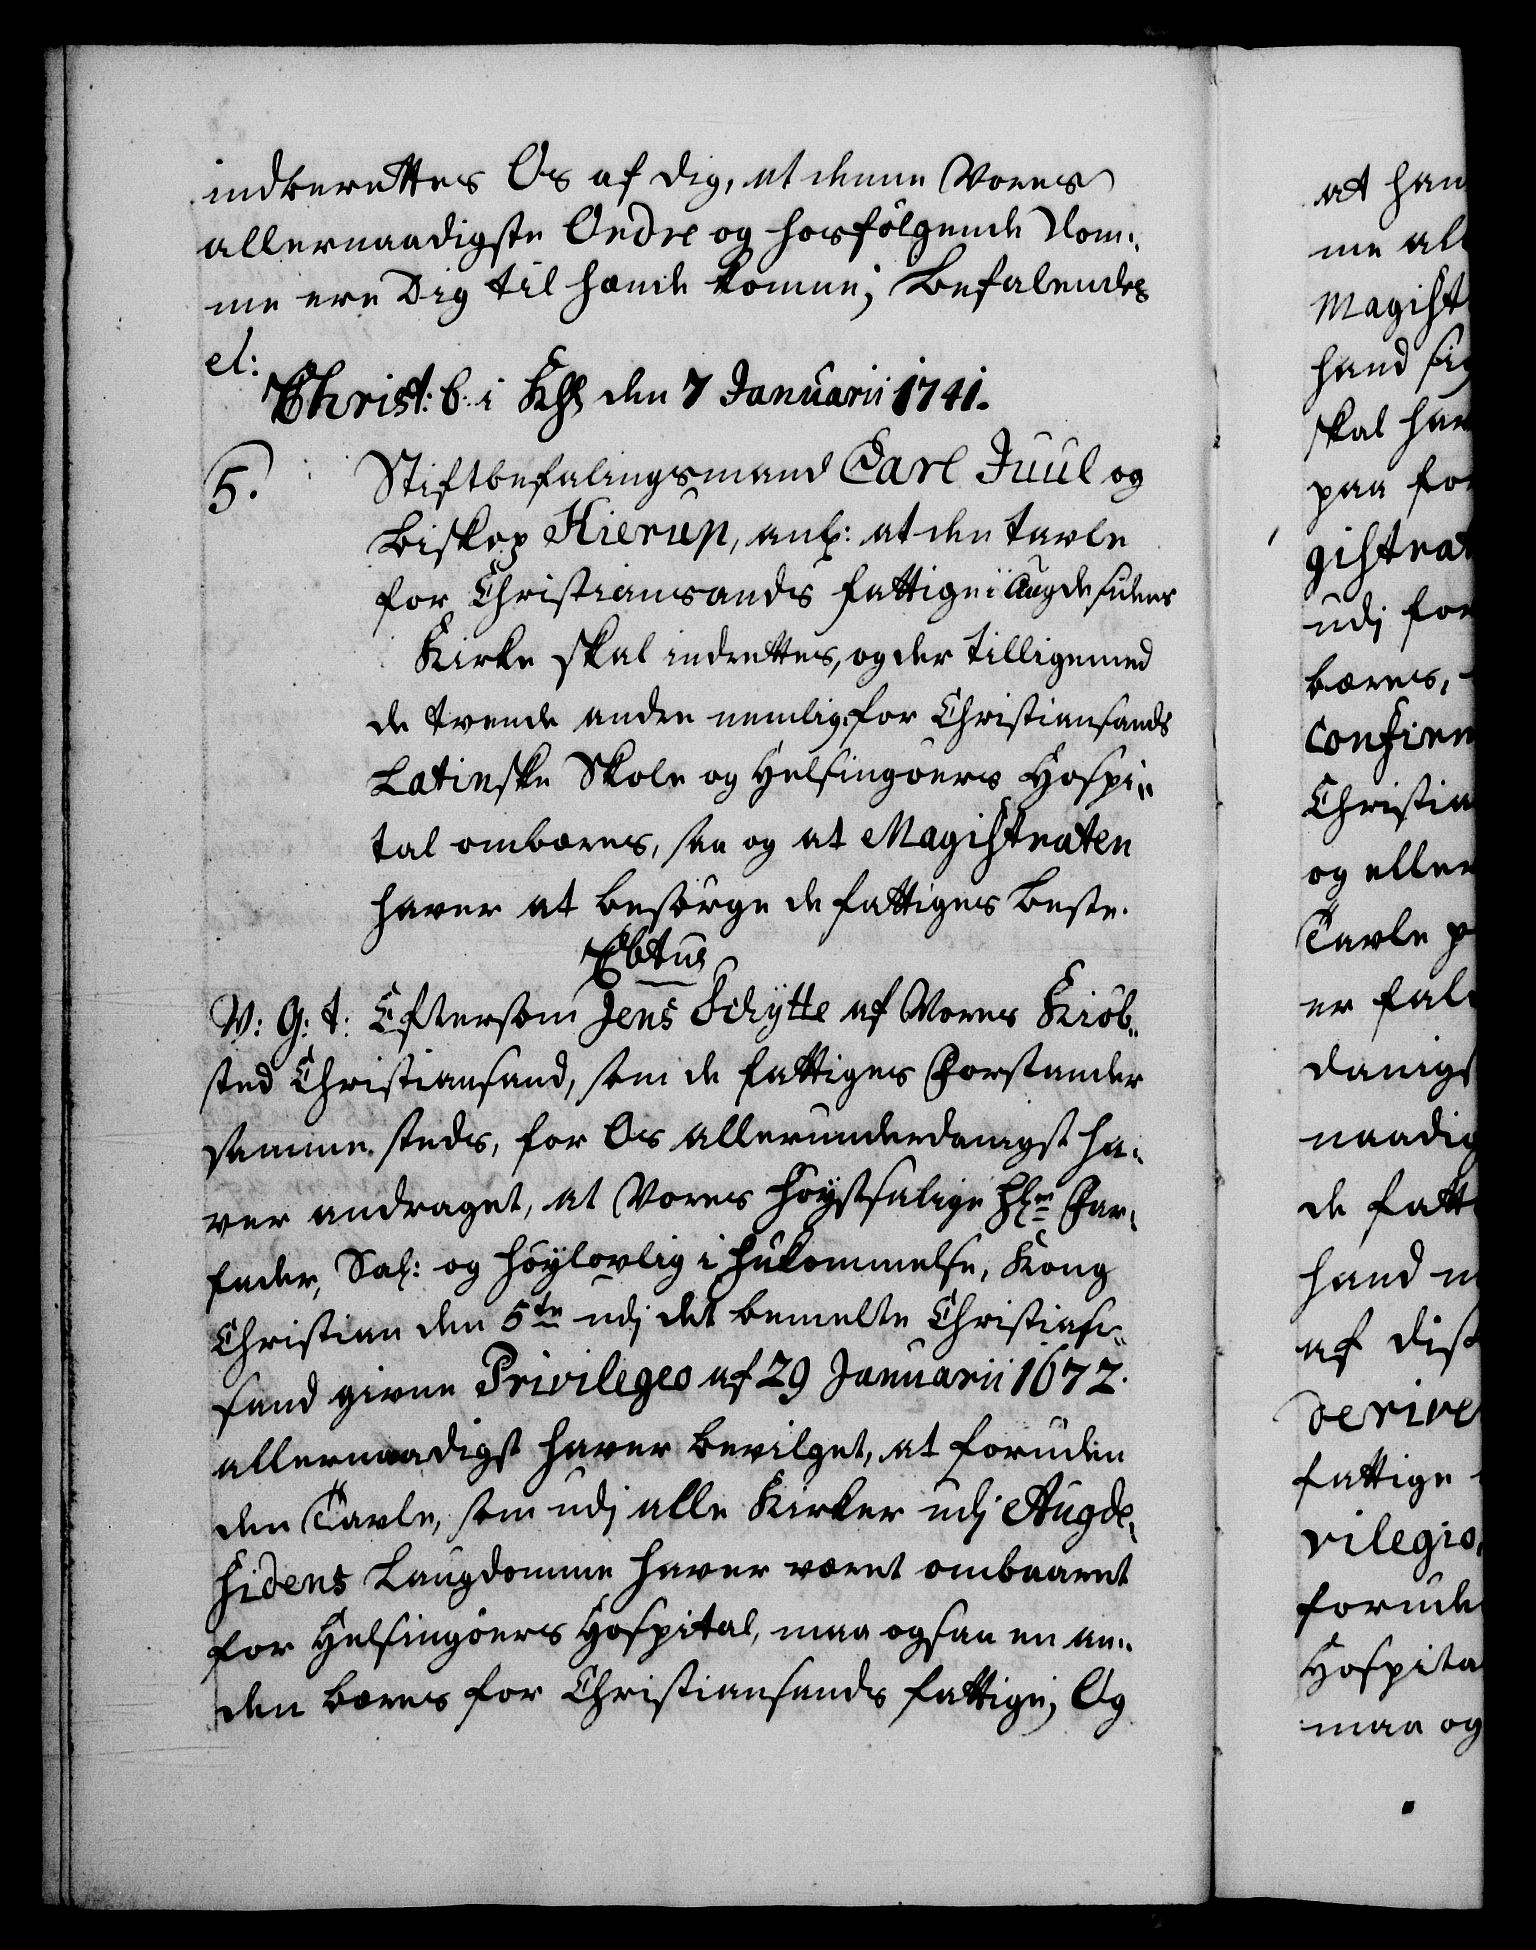 indberettes Os af dig, at denne Vores
allernaadigste Ordre og hosfölgende Dom-
me ere Dig til hænde komne; Befalendes
et:
Christ: b. i Kh den 7 Januarii 1741.
5. Stiftbefalingsmand Carl Juul og
Biskop Kierup, anl: at den tavle
for Christiansands fattige i Augdesidens
Kirke skal indrettes, og der tilligemed
de tvende andre nemlig: for Christiansands
Latinske Skole og Helsingöers Hospi-
tal ombæres, saa og at Magistraten
haver at besörge de fattiges beste.
V: G: t: Eftersom Jens Schytte af Vores Kiöb-
sted Christiansand, som de fattiges Forstander
sammesteds, for Os allerunderdanigst ha-
ver andraget, at Vores Höystsalige Hr Far-
fader, Sal: og höylovlig i hukommelse, Kong
Christian den 5te udj det bemelte Christian-
sand givne Privileges af 29 Januarii 1672.
allernaadigst haver bevilget, at foruden
den Tavle, som udj alle Kirker udj Augde-
sidens Laugdomme haver været ombaaret
for Helsingöers Hospital, maa ogsaa en an-
den bæres for Christiansands fattige; Og
at han
me all
Magist
hand sig
skal han
paa for
gistrat
udj for
bæres,
Confirm
Christia
og eller
Tavle p
er fal
danigs
naadig
de fatt
hand
af dis
derive
fattige
vilegio,
forude
Hospita
maa og